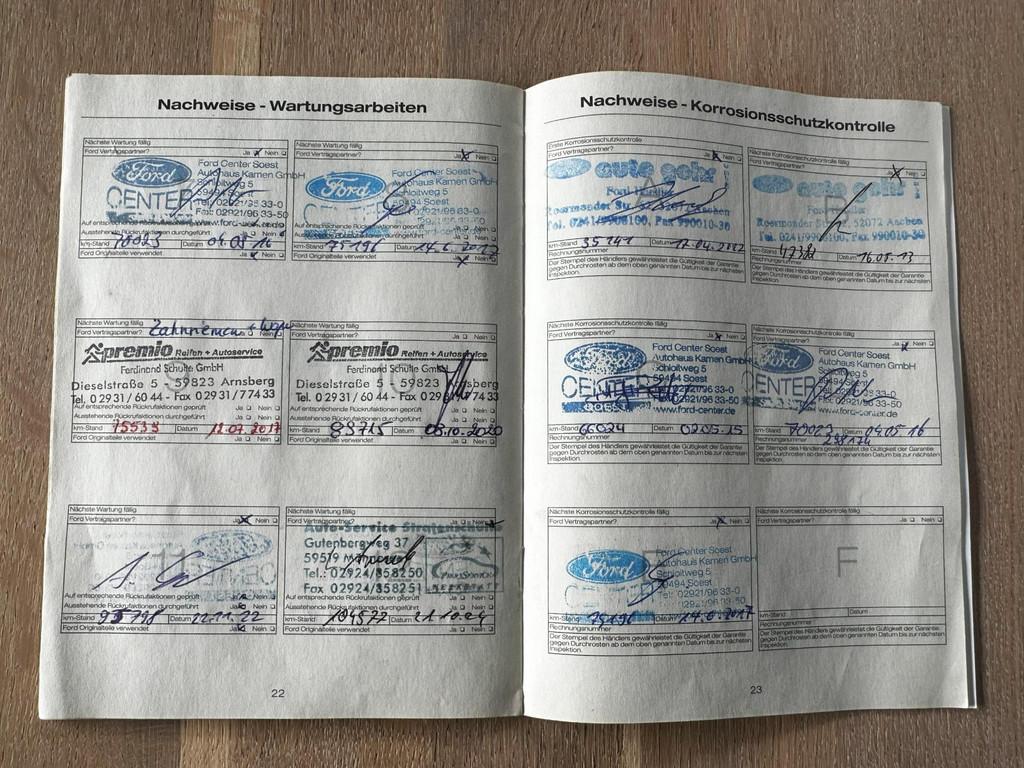 Nachweise - Wartungsarbeiten
Nächste Wartung fällig
Ford Vertragspartner? Ja Nein
Ford
CENTER
Ford Center Soest
Autohaus Kamen GmbH
Schloitweg 5
59494 Soest
Fax: 02921/96 33-50
km-Stand 70023 Datum 04.08.16
Ford Originalteile verwendet Ja Nein
Nächste Wartung fällig
Ford Vertragspartner? Ja Nein
Ford
Ford Center Soest
Autohaus Kamen GmbH
Schloitweg 5
59494 Soest
02921/96 33-0
km-Stand 75196 Datum
Ford Originalteile verwendet Ja Nein
Nächste Wartung fällig Zahnriemen +
Ford Vertragspartner? Ja Nein
premio Reifen + Autoservice
Ferdinand Schulte GmbH
Dieselstraße 5 - 59823 Arnsberg
Tel. 0 29 31 / 60 44 - Fax 0 29 31 / 7 74 33
Auf entsprechende Rückrufaktionen geprüft Ja Nein
Ausstehende Rückrufaktionen durchgeführt Ja Nein
km-Stand 75539 Datum 12.07.2017
Ford Originalteile verwendet Ja Nein
Nächste Wartung fällig
Ford Vertragspartner? Ja Nein
premio Reifen + Autoservice
Ferdinand Schulte GmbH
Dieselstraße 5 - 59823 Arnsberg
Tel. 0 29 31 / 60 44 - Fax 0 29 31 / 7 74 33
Auf entsprechende Rückrufaktionen geprüft Ja Nein
Ausstehende Rückrufaktionen durchgeführt Ja Nein
km-Stand 88715 Datum 08.10.2020
Ford Originalteile verwendet Ja Nein
Nächste Wartung fällig
Ford Vertragspartner? Ja Nein
Auf entsprechende Rückrufaktionen geprüft Ja
Ausstehende Rückrufaktionen durchgeführt Ja
km-Stand Datum 22.11.22
Ford Originalteile verwendet Ja Nein
Nächste Wartung fällig
Ford Vertragspartner? Ja Nein
Auto-Service
Gutenbergweg 37
59519
Tel.: 02924/858250
Fax 02924/858251
Auf entsprechende Rückrufaktionen geprüft Ja Nein
Ausstehende Rückrufaktionen durchgeführt Ja Nein
km-Stand 104577 Datum
Ford Originalteile verwendet Ja Nein
22
Nachweise - Korrosionsschutzkontrolle
Erste Korrosionsschutzkontrolle
Ford Vertragspartner? Ja Nein
gute gohr
Ford-Händler
Roermonder Str. Aachen
Tel. 0241/9908100, Fax 990010-30
km-Stand 35141 Datum 17.04.2012
Rechnungsnummer
Der Stempel des Händlers gewährleistet die Gültigkeit der Garantie
gegen Durchrosten ab dem oben genannten Datum bis zur nächsten
Inspektion.
Nächste Korrosionsschutzkontrolle fällig
Ford Vertragspartner? Ja Nein
gute gohr
Roermonder Str. 52072 Aachen
Tel. 0241/9908100, Fax 990010-30
km-Stand Datum
Rechnungsnummer
Der Stempel des Händlers gewährleistet die Gültigkeit der Garantie
gegen Durchrosten ab dem oben genannten Datum bis zur nächsten
Inspektion.
Nächste Korrosionsschutzkontrolle fällig
Ford Vertragspartner? Ja Nein
CENTER
SOEST
Ford Center Soest
Autohaus Kamen GmbH
Schloitweg 5
59494 Soest
02921/96 33-0
www.ford-center.de
km-Stand 66024 Datum 02.05.15
Rechnungsnummer
Der Stempel des Händlers gewährleistet die Gültigkeit der Garantie
gegen Durchrosten ab dem oben genannten Datum bis zur nächsten
Inspektion.
Nächste Korrosionsschutzkontrolle fällig
Ford Vertragspartner? Ja Nein
Ford
CENTER
Ford Center Soest
Autohaus Kamen GmbH
Schloitweg 5
59494 Soest
02921/96 33-0
02921/96 33-50
www.ford-center.de
km-Stand 70023 Datum 04.05.16
Rechnungsnummer
Der Stempel des Händlers gewährleistet die Gültigkeit der Garantie
gegen Durchrosten ab dem oben genannten Datum bis zur nächsten
Inspektion.
Nächste Korrosionsschutzkontrolle fällig
Ford Vertragspartner? Ja Nein
Ford
Ford Center Soest
Autohaus Kamen GmbH
Schloitweg 5
59494 Soest
02921/96 33-0
km-Stand 75196 Datum 14.6.2017
Rechnungsnummer
Der Stempel des Händlers gewährleistet die Gültigkeit der Garantie
gegen Durchrosten ab dem oben genannten Datum bis zur nächsten
Inspektion.
Nächste Korrosionsschutzkontrolle fällig
Ford Vertragspartner? Ja Nein
F
km-Stand Datum
Rechnungsnummer
Der Stempel des Händlers gewährleistet die Gültigkeit der Garantie
gegen Durchrosten ab dem oben genannten Datum bis zur nächsten
Inspektion.
23